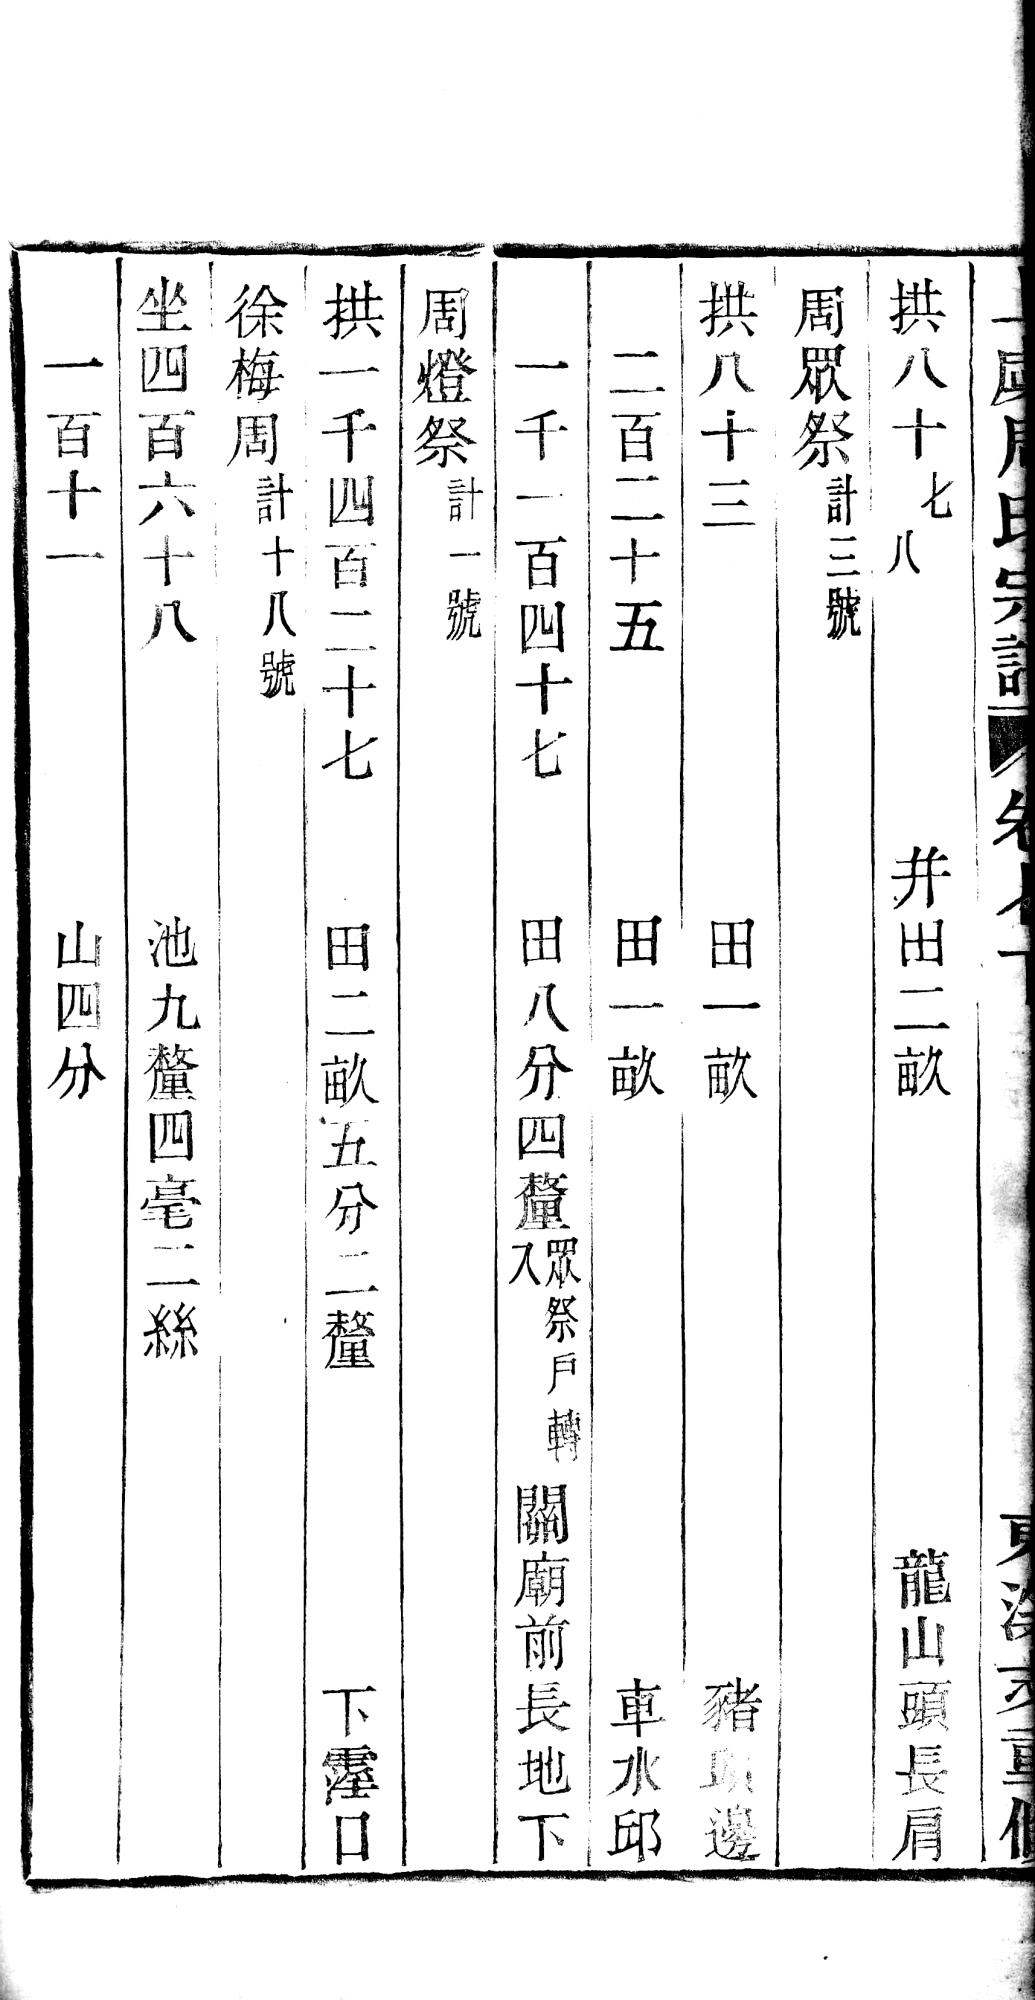 周氏宗譜 卷 重修
拱八十七八 井田二畝 龍山頭長肩
周眾祭計三號
拱八十三 田一畝 豬 邊
二百二十五 田一畝 車水邱
一千一百四十七 田八分四釐眾祭戶轉入 關廟前長地下
周燈祭計一號
拱一千四百二十七 田二畝五分二釐 下口
徐梅周計十八號
坐四百六十八 池九釐四毫二絲
一百十一 山四分